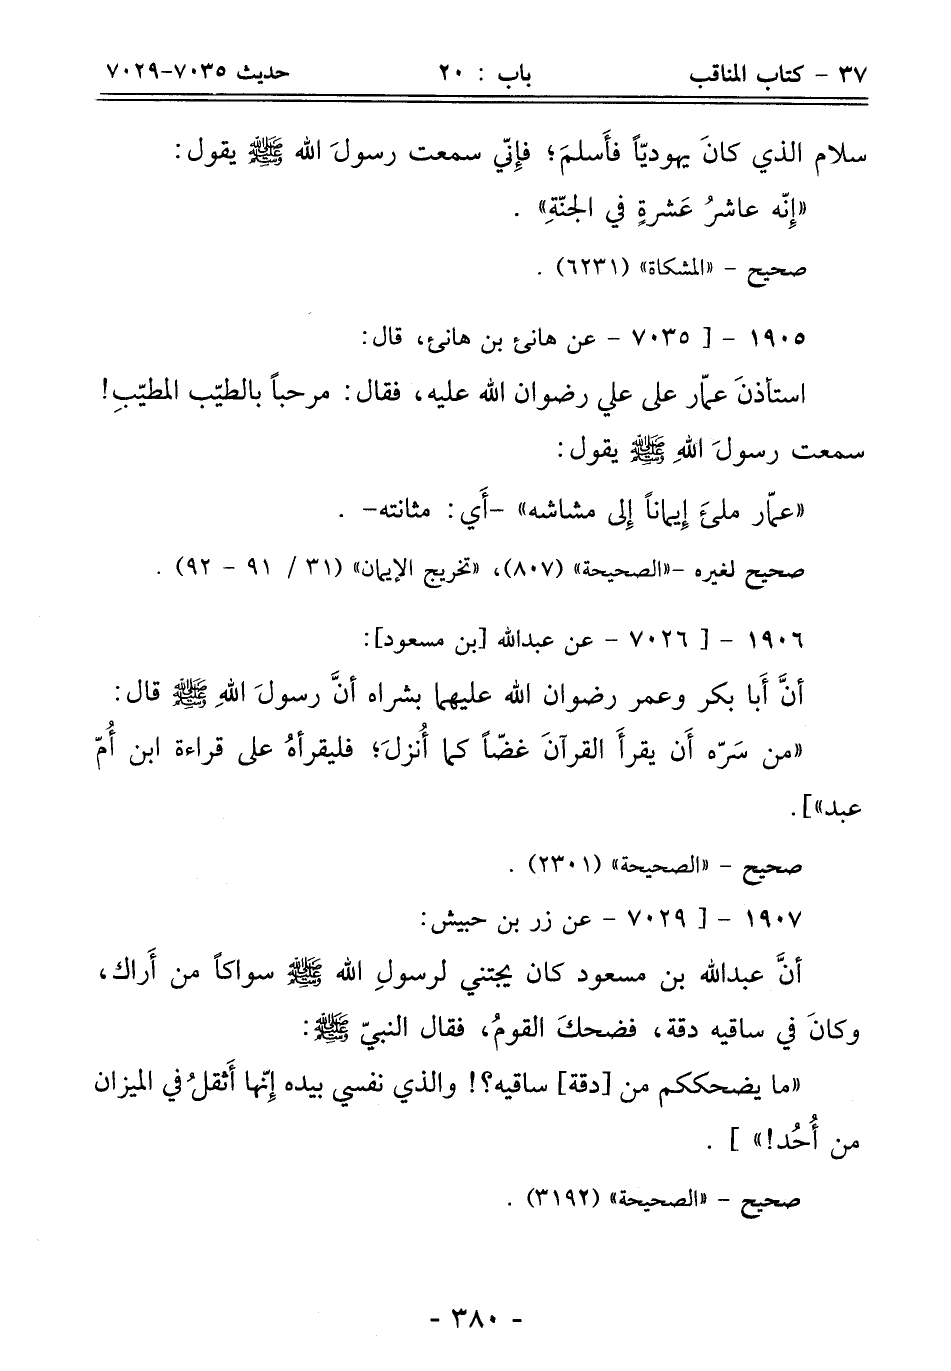 ٣٧ - كتاب المناقب باب : ٢٠ حديث ٧٠٣٥-٧٠٢٩
سلام الذي كانَ يهوديّاً فأَسلمَ؛ فإنّي سمعت رسولَ الله ﷺ يقول:
«إنّه عاشرُ عَشرةٍ في الجنّةِ» .
صحيح - «المشكاة» (٦٢٣١) .
١٩٠٥ - [ ٧٠٣٥ - عن هانئ بن هانئ، قال:
استأذنَ عمّار على علي رضوان الله عليه، فقال: مرحباً بالطيّب المطيّبِ!
سمعت رسولَ اللهِ ﷺ يقول:
«عمّار ملئَ إيماناً إلى مشاشه» -أَي: مثانته- .
صحيح لغيره -«الصحيحة» (٨٠٧)، «تخريج الإيمان» (٣١ / ٩١ - ٩٢) .
١٩٠٦ - [ ٧٠٢٦ - عن عبدالله [بن مسعود]:
أنَّ أَبا بكر وعمر رضوان الله عليهما بشراه أنَّ رسولَ اللهِ ﷺ قال:
«من سَرّه أَن يقرأَ القرآنَ غضّاً كما أُنزلَ؛ فليقرأهُ على قراءة ابن أُمّ
عبد»].
صحيح - «الصحيحة» (٢٣٠١) .
١٩٠٧ - [ ٧٠٢٩ - عن زر بن حبيش:
أنَّ عبدالله بن مسعود كان يجتني لرسولِ الله ﷺ سواكاً من أَراك،
وكانَ في ساقيه دقة، فضحكَ القومُ، فقال النبيّ ﷺ:
«ما يضحككم من [دقة] ساقيه؟! والذي نفسي بيده إنّها أَثقلُ في الميزان
من أُحُد!» ] .
صحيح - «الصحيحة» (٣١٩٢) .
- ٣٨٠ -